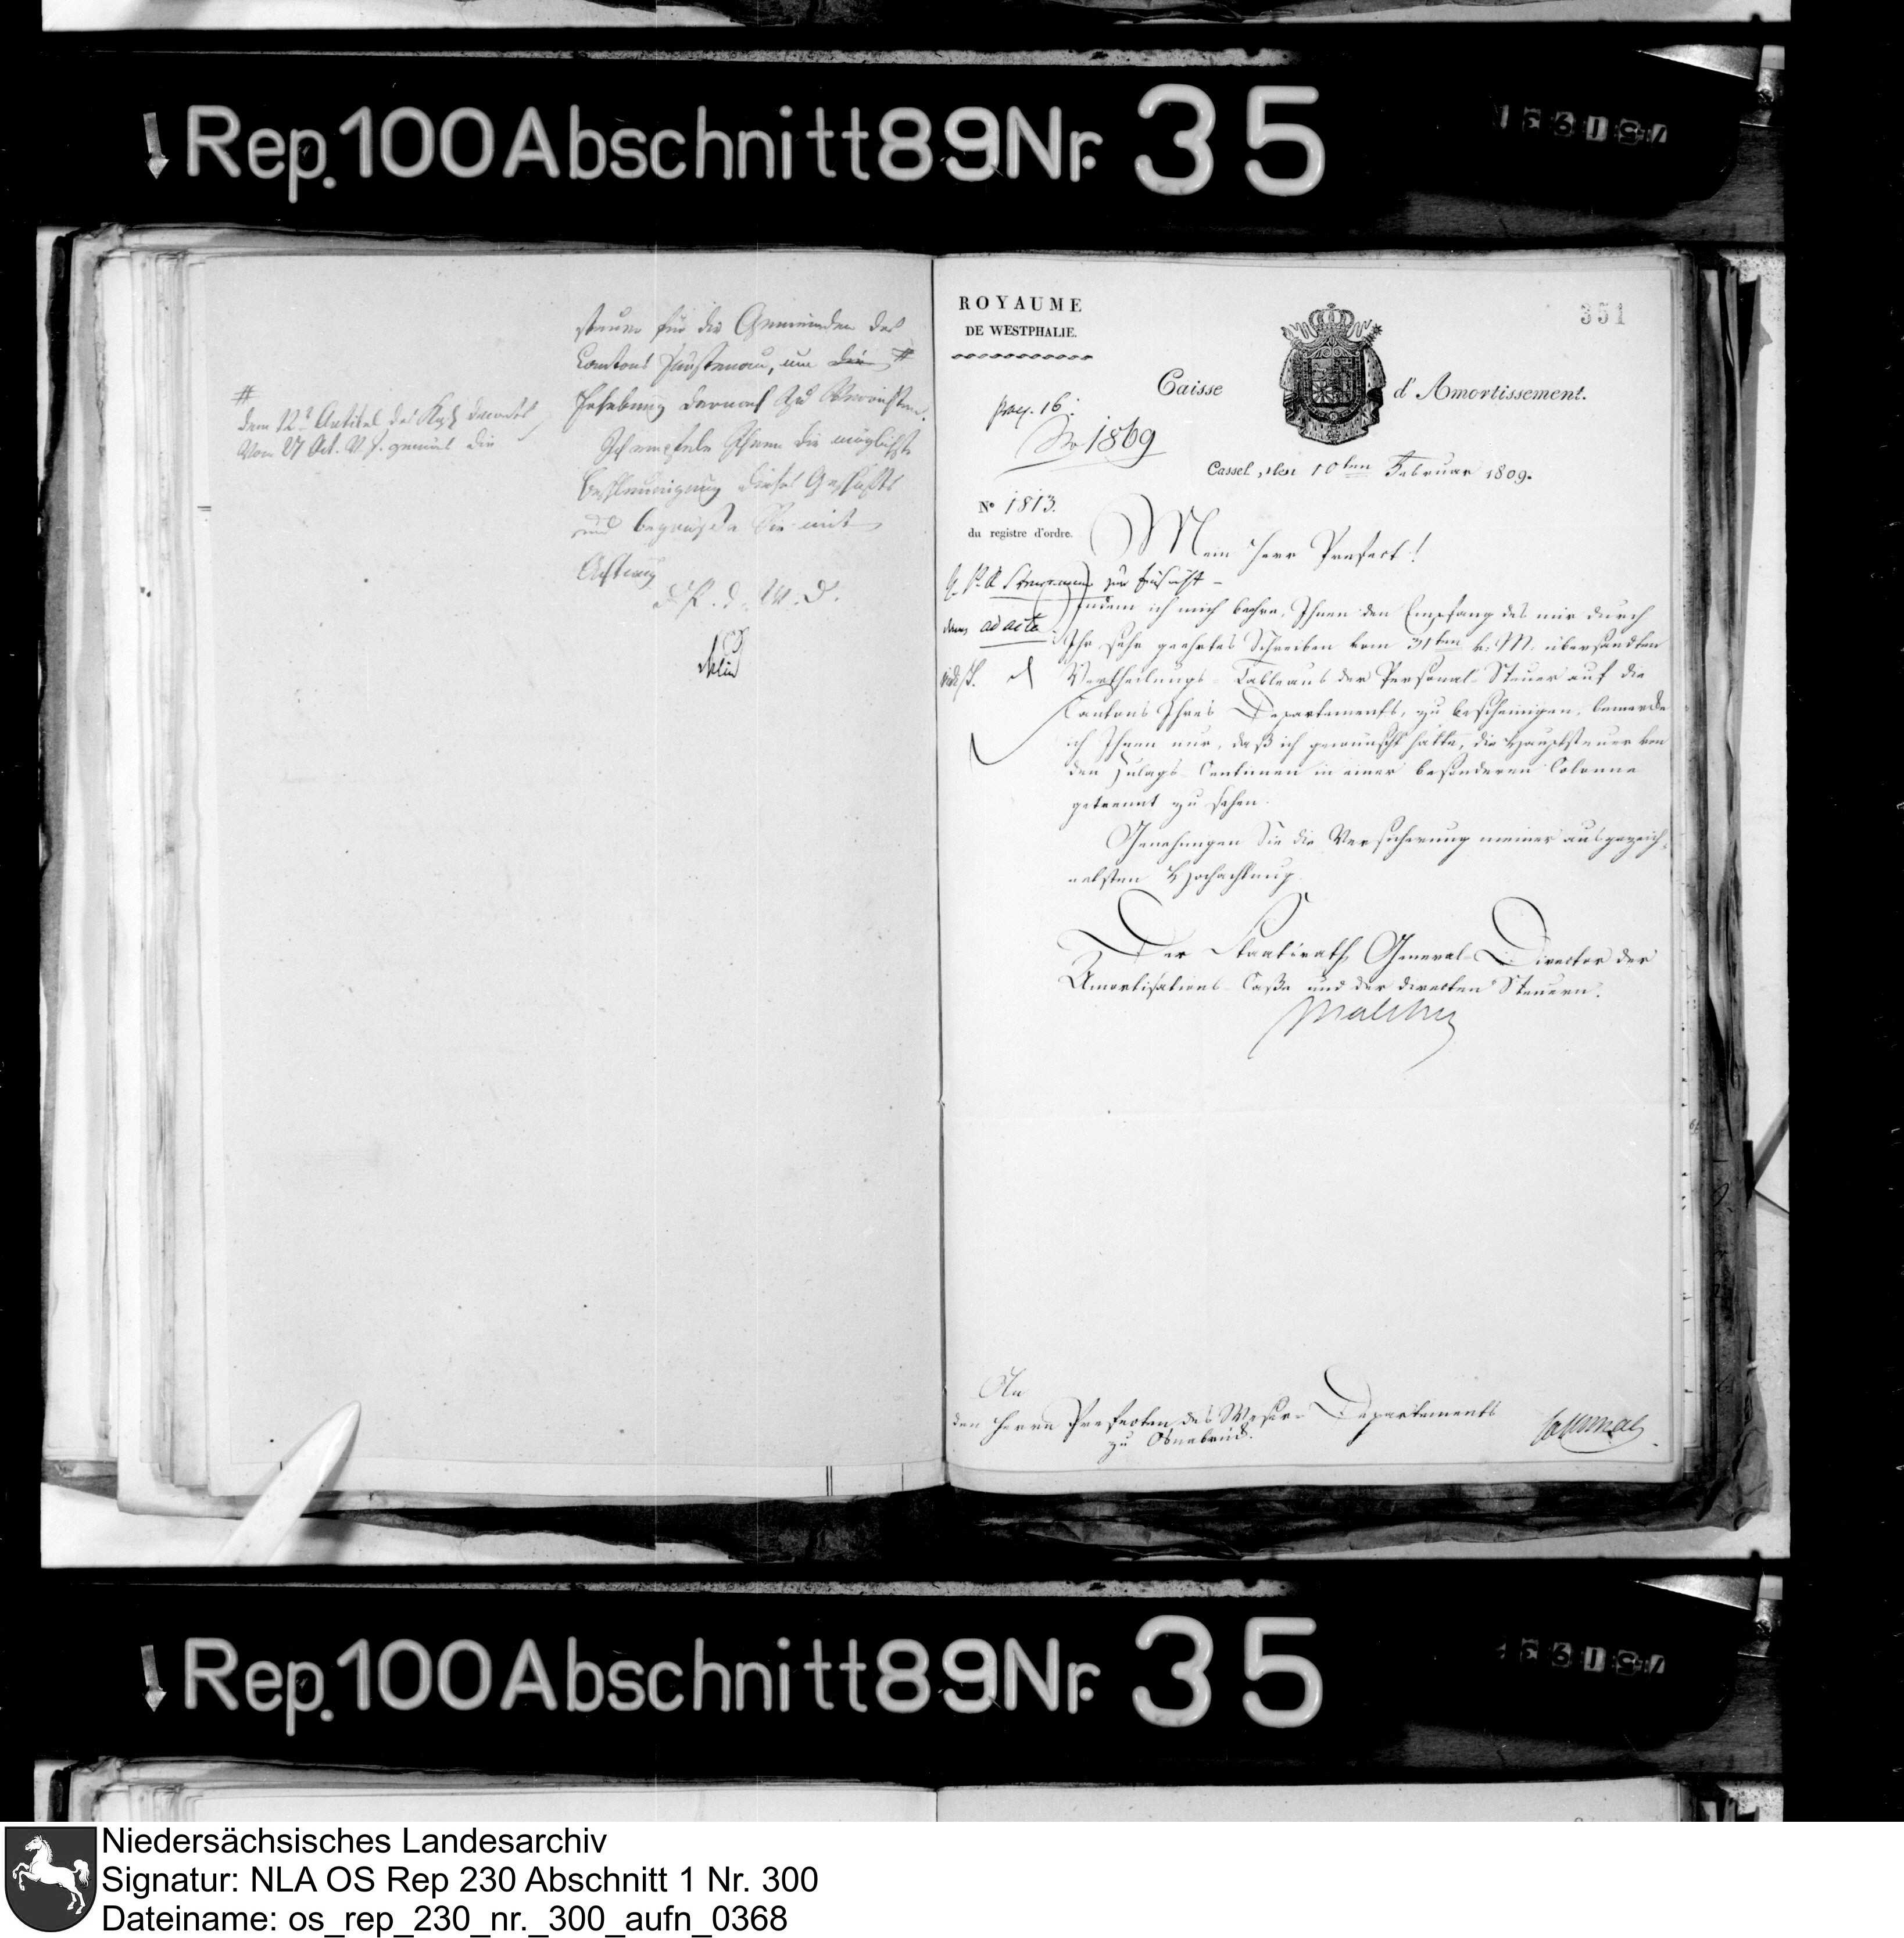 Rep. 100 Abschnitt 89 Nr. 35
steuer für die Gemeinden des
Cantons Fürstenau, um die #
Hebung darnach zu
#
dem 12t Artikel des Kgl. Decrets
vom 27 Oct. v. J. gemäß die
Ich empfehle Ihnen die möglichste
Beschleunigung dieses Geschäfts
und begrüße Sie mit
Achtung
D. P. d. W. D.
351
ROYAUME
DE WESTPHALIE.
Caisse d'Amortissement.
praes. 16.
No 1869
Cassel, den 10ten Februar 1809.
No 1813.
du registre d'ordre.
Mein Herr Prefect!
zur Einsicht
ad acta
Indem ich mich beehre, Ihnen den Empfang des mir durch
Ihr sehr geehrtes Schreiben vom 31ten v. M. übersandten
Vertheilungs-Tableaus der Personal-Steuer auf die
Cantons Ihres Departements, zu bescheinigen, bemerke
ich Ihnen nur, daß ich gewünscht hätte, die Hauptsteuer von
den Zulags-Centimen in einer besonderen Colonne
getrennt zu sehen.
Genehmigen Sie die Versicherung meiner ausgezeich-
netsten Hochachtung.
Der Staatsrath General-Director der
Amortisations-Casse und der directen Steuern.
Malchus
An
den Herrn Prefecten des Weser-Departements
zu Osnabrück.
Rep. 100 Abschnitt 89 Nr. 35
Niedersächsisches Landesarchiv
Signatur: NLA OS Rep 230 Abschnitt 1 Nr. 300
Dateiname: os_rep_230_nr._300_aufn_0368